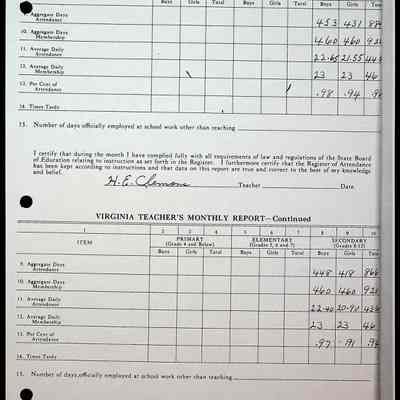 Boys Girls Total Boys Girls Total Boys Girls
9. Aggregate Days Attendance 453 431
10. Aggregate Days Membership 460 460
11. Average Daily Attendance 22.65 21.55
12. Average Daily Membership 23 23 46
13. Per Cent of Attendance .98 .94
14. Times Tardy
15. Number of days officially employed at school work other than teaching
I certify that during the month I have complied fully with all requirements of law and regulations of the State Board
of Education relating to instruction as set forth in the Register. I furthermore certify that the Register of Attendance
has been kept according to instructions and that data on this report are true and correct to the best of my knowledge
and belief.
H. E. Clemons Teacher Date
VIRGINIA TEACHER'S MONTHLY REPORT—Continued
1 2 3 4 5 6 7 8 9 10
ITEM PRIMARY ELEMENTARY SECONDARY
(Grade 4 and Below) (Grades 5, 6 and 7) (Grades 8-12)
Boys Girls Total Boys Girls Total Boys Girls
9. Aggregate Days Attendance 448 418 866
10. Aggregate Days Membership 460 460
11. Average Daily Attendance 22.40 20.90
12. Average Daily Membership 23 23 46
13. Per Cent of Attendance .97 .91
14. Times Tardy
15. Number of days officially employed at school work other than teaching